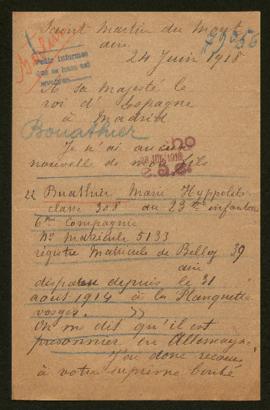 Saint Martin du Mont
ain
24 Juin 1918
A sa majesté le
roi d'Espagne
à Madrid
Bouathier
Je n'ai aucune
nouvelle de mon fils
22 Buathier Marie Hyppolite
classe 308 du 23me infanterie
6me Compagnie
No Matricule 5133
régistre Matricule de Belley 39
ain
disparu depuis le 31
août 1914 à la
vosges. »
On m dit qu'il est
prisonnier en Allemagne
J'ai donc recours
à votre suprême bonté